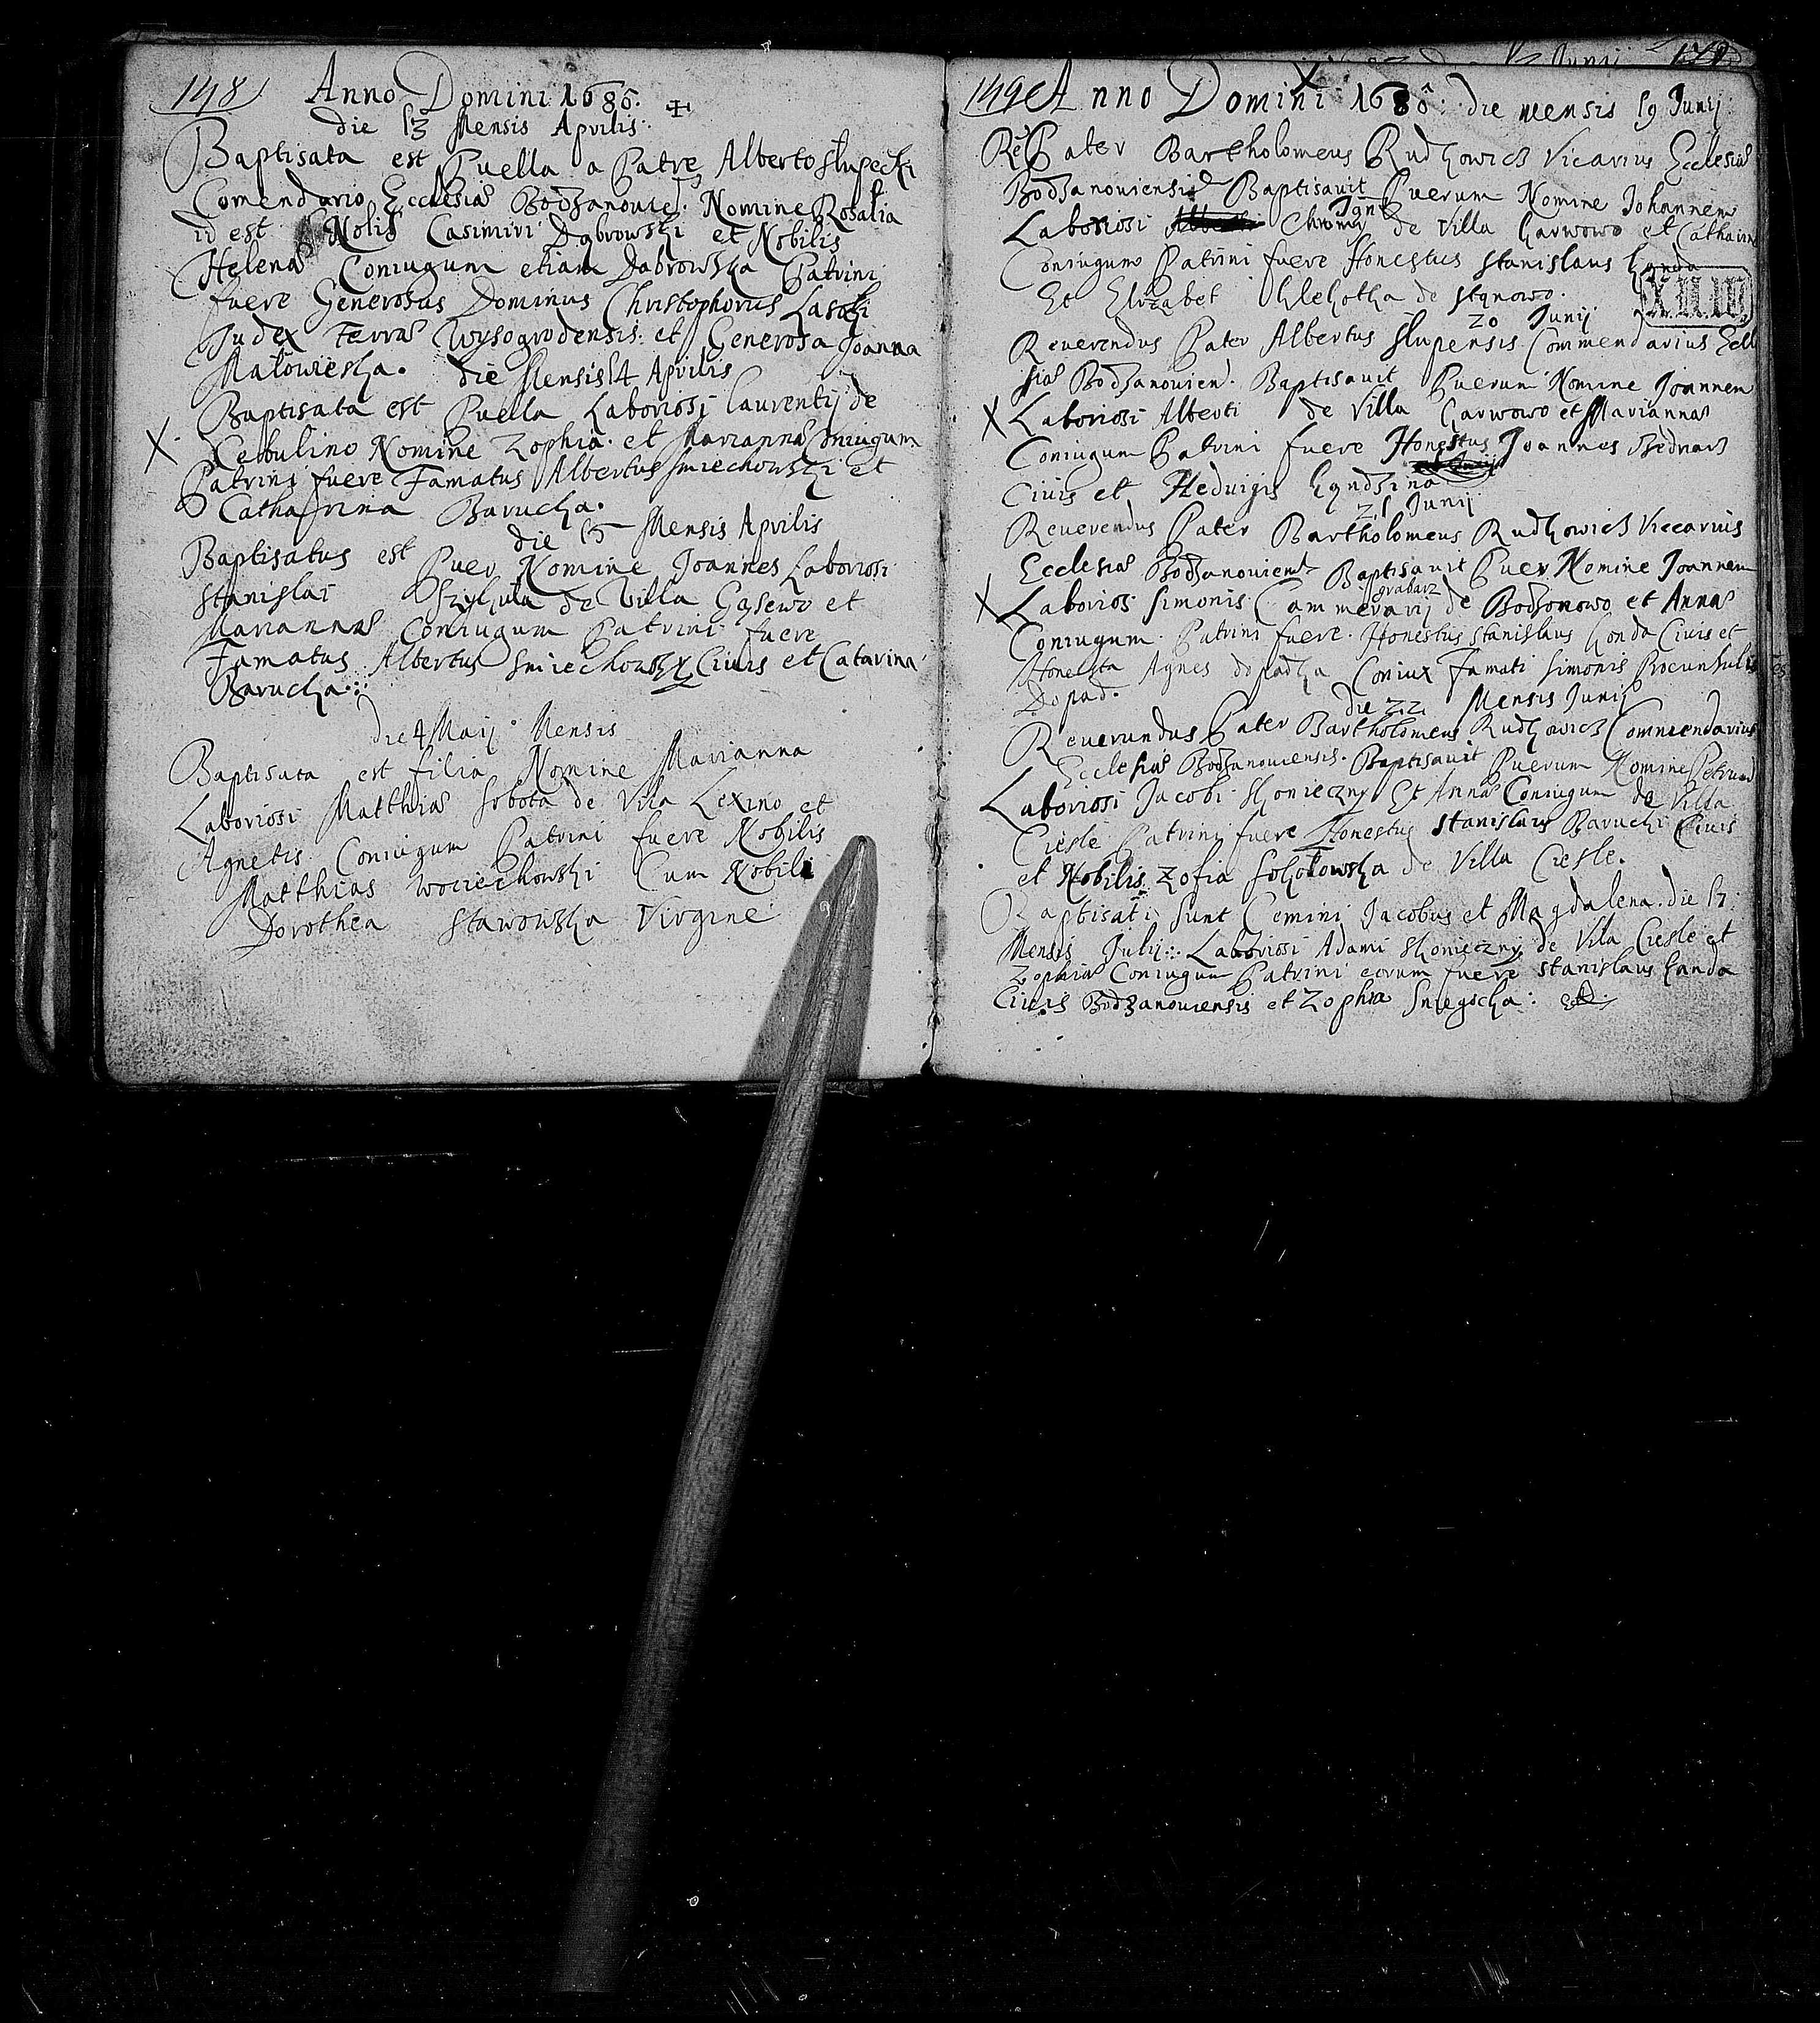 148
Anno Domini 1686.
die 13 Mensis Aprilis
Baptisata est Puella a Patre Alberto Słupecki
Comendario Ecclesiæ Bodzanouie. Nomine Rosalia
id est Nolis Casimiri Dąbrowski et Nobilis
Helenæ Coniugum etiam Dabrowska Patrini
fuere Generosus Dominus Christophorus Lasoki
Judex Terræ Wysogrodensis et Generosa Joanna
Małowieska. die Mensis 14 Aprilis
Baptisata est Puella Laboriosi Laurentij de
X Cebulino Nomine Zophia et Mariannæ Coniugum
Patrini fuere Famatus Albertus Smiechowski et
Catharina Barucha.
die 15 Mensis Aprilis
Baptisatus est Puer Nomine Joannes Laboriosi
Stanislai de Villa Gąsewo et
Mariannæ Coniugum Patrini fuere
Famatus Albertus Smiechowsky Ciuis et Catarina
Barucha.
die 4 Maij Mensis
Baptisata est filia Nomine Marianna
Laboriosi Matthiæ Sobota de Vila Lexino et
Agnetis Coniugum Patrini fuere Nobilis
Matthias Wociechowski Cum Nobili
Dorothea Stawowska Virgine
149 Anno Domini 1686. die mensis 19 Junij
Rė Pater Bartholomeus Rudkowicz Vicarius Ecclesiæ
Bodzanouiensis Baptisauit Puerum Nomine Johannem
Laboriosi Chromy de Villa Garwowo et Catharin
Coniugum Patrini fuere Honestus Stanislaus
Et Elizabet de Stąnowo.
20 Junij
Reuerendus Pater Albertus Slupensis Commendarius Eccl
siæ Bodzanouien. Baptisauit Puerum Nomine Joannem
X Laboriosi Alberti de Villa Garwowo et Mariannæ
Coniugum Patrini fuere Honestus Joannes Bednarz
Ciuis et Heduigis
21 Junij
Reuerendus Pater Bartholomeus Rudkowicz Viccarius
Ecclesiæ Bodzanouien Baptisauit Puer Nomine Joannem
grabarz
X Laborios Simonis Cammerarij de Bodzonowo et Annæ
Coniugum Patrini fuere Honestus Stanislaus Honda Ciuis et
Honesta Agnes Dopadka Coniux Famati Simonis Proconsulis
Dopad.
die 22 Mensis Junij
Reuerundus Pater Bartholomeus Rudkowicz Commendarius
Ecclesiæ Bodzanouiensis. Baptisauit Puerum Nomine Petrum
Laboriosi Jacobi Skonieczny Et Annæ Coniugum de Villa
Ciesle Patrini fuere Honestus Stanislaus Baruchi Ciuis
et Nobilis Zofia Sokołowska de Villa Ciesle.
Baptisati sunt Gemini Jacobus et Magdalena. die 17
Mensis Julij Laboriosi Adami Skonieczny de Vila Ciesle et
Zophiæ Coniugum Patrini eorum fuere Stanislaus Handa
Ciuis Bodzanouiensis et Zophia Sniegocka